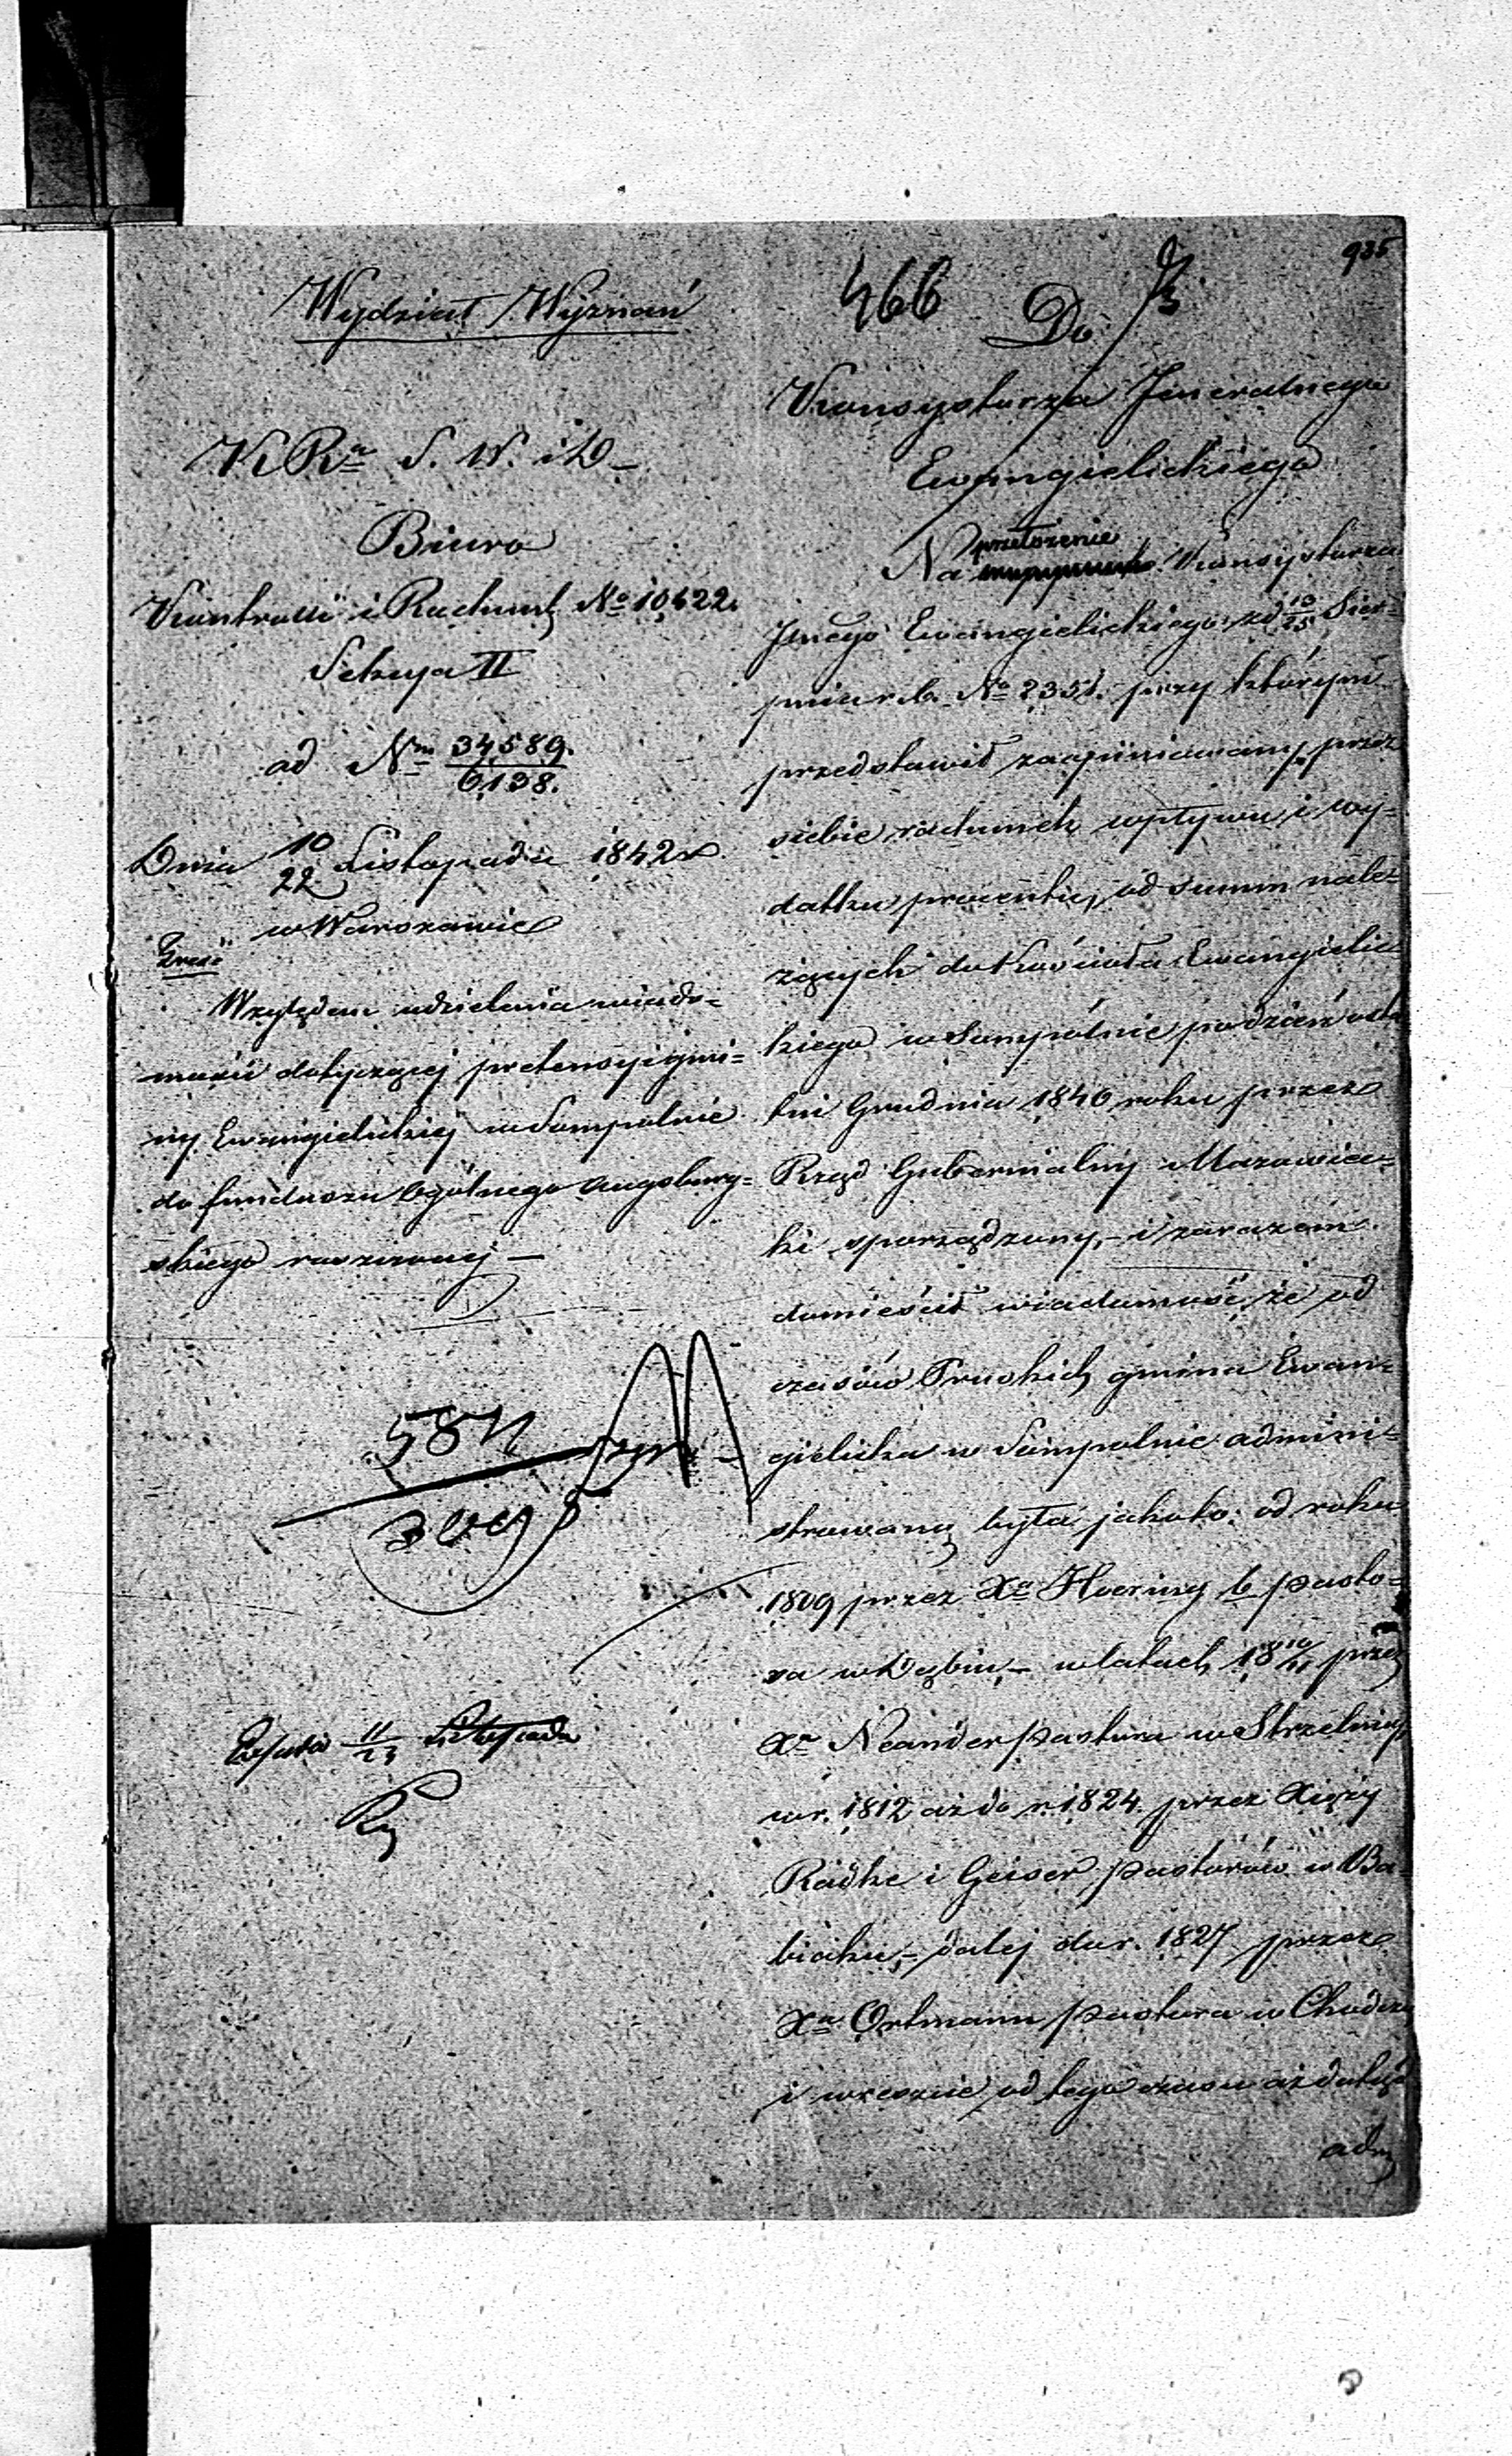 935
Wydział Wyznań
K R S. W. i D
Biuro
Kontrolli i Rachunk. No 10622.
Sekcya II
ad Nm 34589.
6138.
Dnia 10/22 Listopada 1842 r.
w Warszawie
Treść
Względem udzielenia wiado=
mości dotyczącej pretensyi gmi=
ny Ewangielickiej w Sompolnie
do funduszu Ogólnego Augsburg=
skiego roszczonej —
11/23 Listopada
466
Do
Konsystorza Jeneralnego
Ewangielickiego
Na przełożenie Konsystorza
Jnego Ewangielickiego z d 13/25 Sier=
pnia r. b. No 2351. przy którym
przedstawił zaopiniowany przez
siebie rachunek wpływu i wy=
datku procentu od summ nale=
żących do Kościoła Ewangielic=
kiego w Sompolnie po dzień osta
tni Grudnia 1840 roku przez
Rząd Gubernialny Mazowiec=
ki sporządzony, – i zarazem
domieścił wiadomość, że od
czasów Pruskich gmina Ewan=
gielicka w Sompolnie admini=
strowaną była jakoto: od roku
1809 przez Xa Hoering b pasto=
ra w Dąbiu, – w latach 18 10/11 przez
Xa Neander pastora w Strzelnie
w r. 1812 aż do r. 1824 przez Xięży
Radke i Geiser pastorów w Ba=
biaku, – dalej do r. 1827 przez
Xa Ortmann pastora w Chodczu
i wreszcie od tego czasu aż dotąd
adm